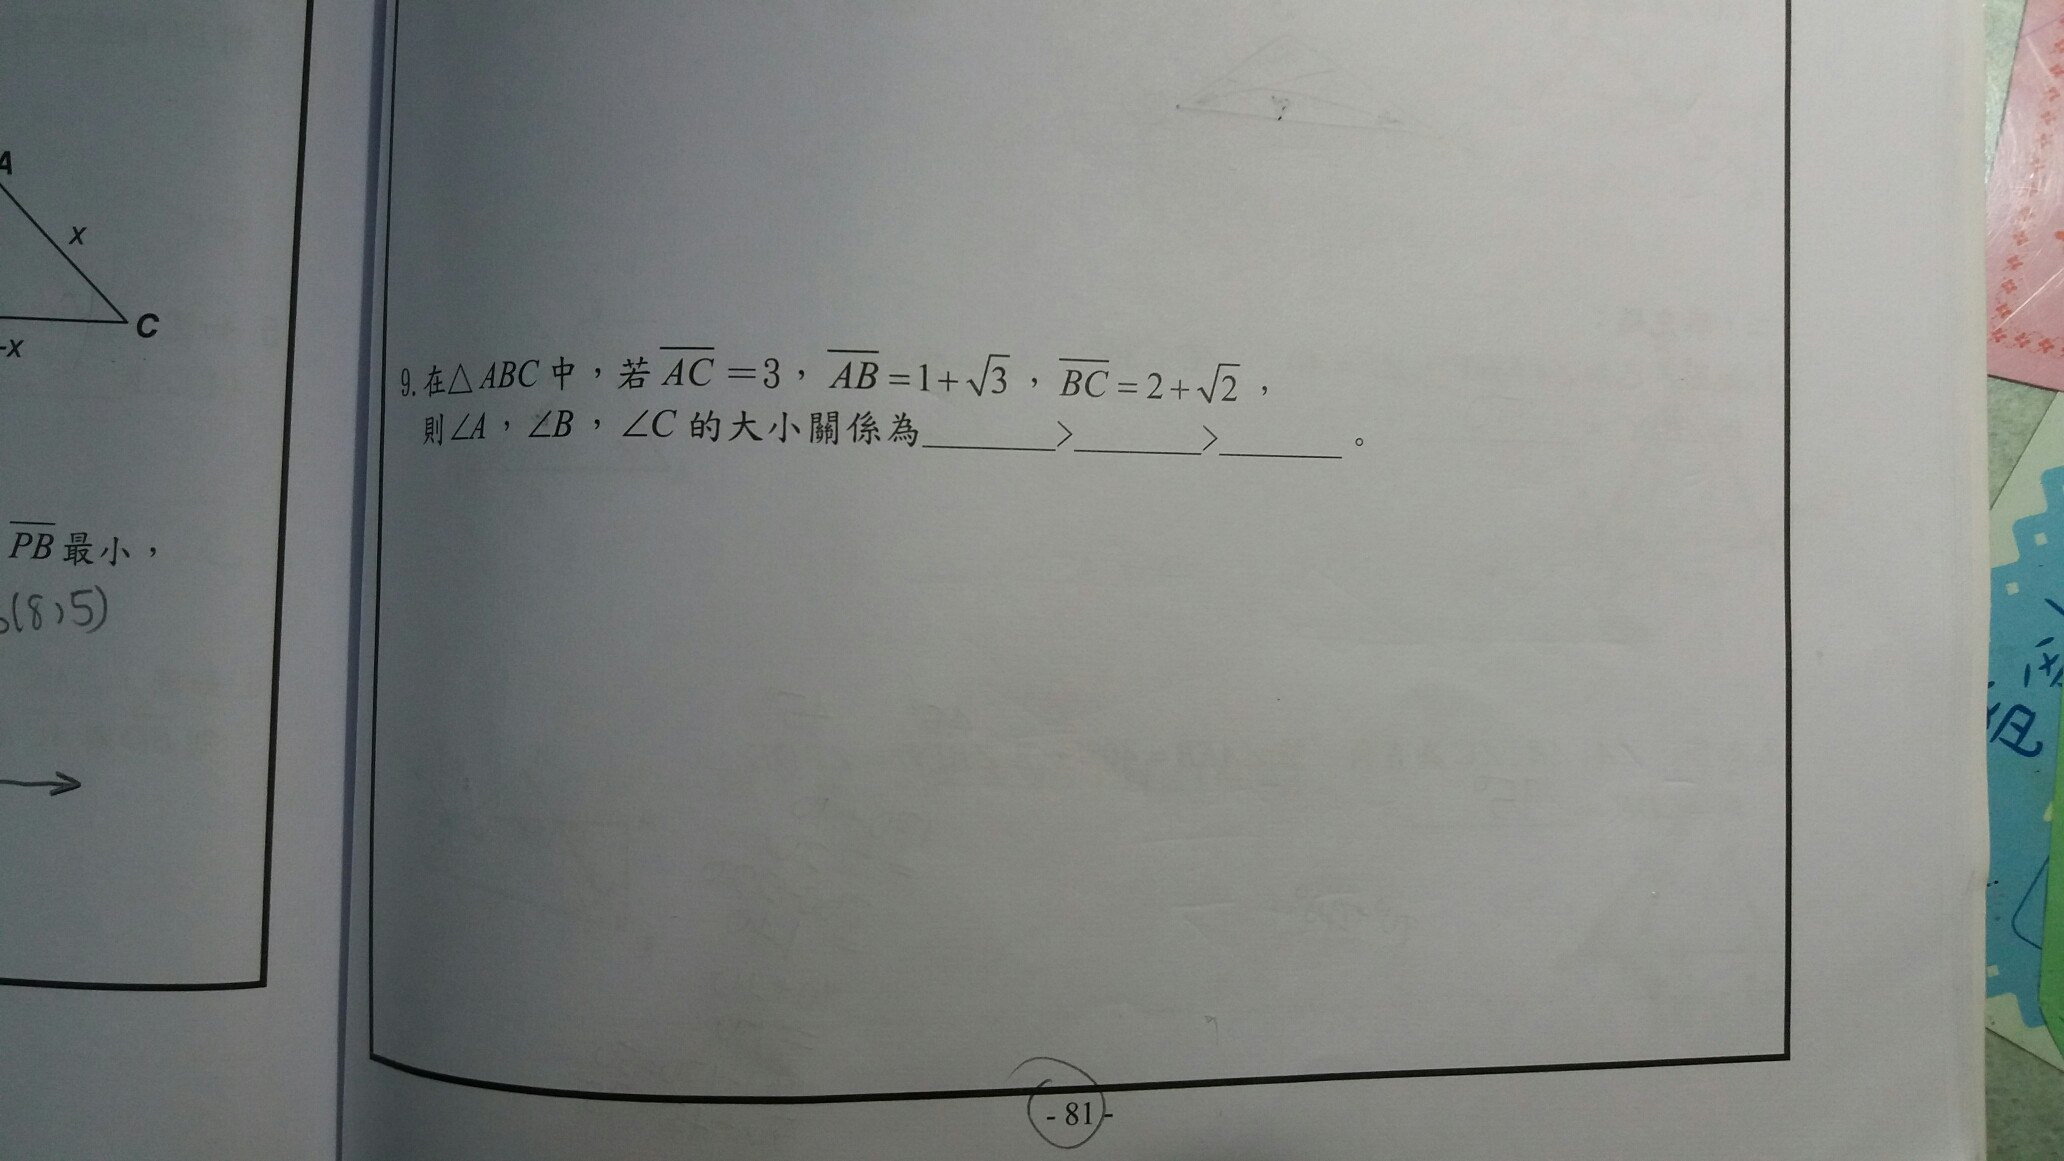 A
x
C
-x
PB 最小，
(8,5)
9.在△ABC中，若 AC =3，AB =1+√3，BC =2+√2，
則∠A，∠B，∠C 的大小關係為______>______>______。
- 81 -